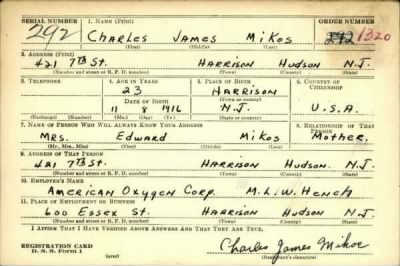 SERIAL NUMBER 1. NAME (Print) ORDER NUMBER
292 Charles James Mikos 292 1320
(First) (Middle) (Last)
2. ADDRESS (Print)
421 7th St. HARRISON HUDSON N.J.
(Number and street or R. F. D. number) (Town) (County) (State)
3. TELEPHONE 4. AGE IN YEARS 5. PLACE OF BIRTH 6. COUNTRY OF CITIZENSHIP
23 HARRISON
(Town or county)
DATE OF BIRTH
11 8 1916 N.J. U.S.A.
(Exchange) (Number) (Mo.) (Day) (Yr.) (State or country)
7. NAME OF PERSON WHO WILL ALWAYS KNOW YOUR ADDRESS 8. RELATIONSHIP OF THAT PERSON
Mrs. Edward Mikos Mother
(Mr., Mrs., Miss) (First) (Middle) (Last)
9. ADDRESS OF THAT PERSON
421 7th St. HARRISON HUDSON. N.J
(Number and street or R. F. D. number) (Town) (County) (State)
10. EMPLOYER'S NAME
AMERICAN OXYGEN CORP. M.L.W. HENCH
11. PLACE OF EMPLOYMENT OR BUSINESS
600 ESSEX St. HARRISON HUDSON N.J.
(Number and street or R. F. D. number) (Town) (County) (State)
I AFFIRM THAT I HAVE VERIFIED ABOVE ANSWERS AND THAT THEY ARE TRUE.
REGISTRATION CARD
D. S. S. FORM 1 (over) Charles James Mikos
(Registrant's signature)